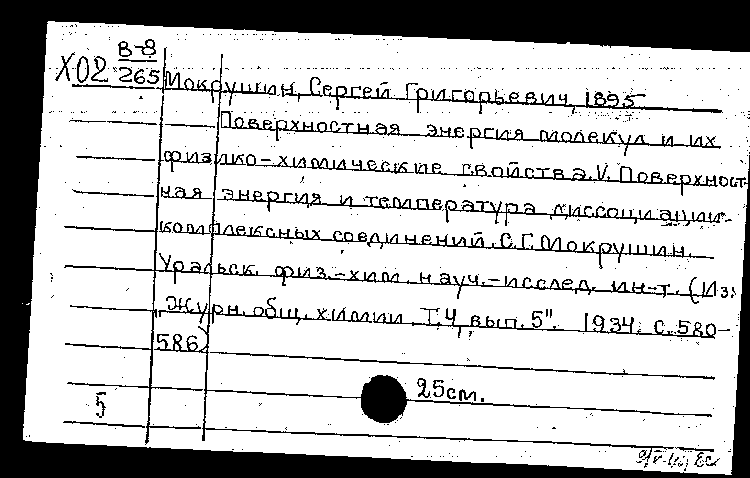 В-8
Х02 265 Мокрушин, Сергей Григорьевич, 1895
Поверхностная энергия молекул и их
физико-химические свойства. V. Поверхност-
ная энергия и температура диссоциации
комплексных соединений. С.Г. Мокрушин.
Уральск. физ.-хим. науч.-исслед. ин-т. (Из:
"Журн. общ. химии Т. 4, вып. 5". 1934. с. 580-
586)
25см.
5